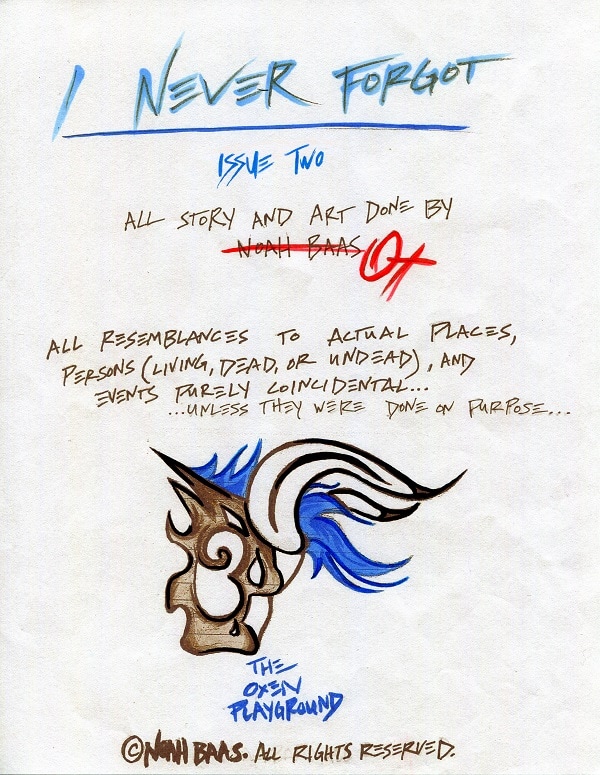 I NEVER FORGOT
ISSUE TWO
ALL STORY AND ART DONE BY
NOAH BAAS OX
ALL RESEMBLANCES TO ACTUAL PLACES,
PERSONS (LIVING, DEAD, OR UNDEAD), AND
EVENTS PURELY COINCIDENTAL...
...UNLESS THEY WERE DONE ON PURPOSE...
THE
OXEN
PLAYGROUND
©NOAH BAAS. ALL RIGHTS RESERVED.